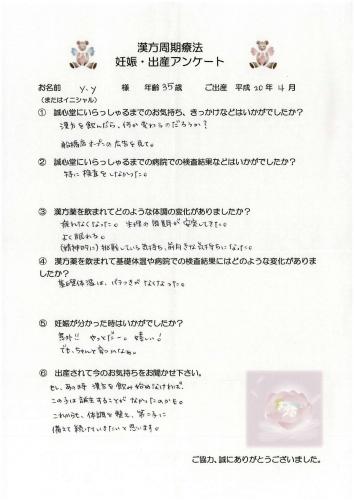 漢方周期療法
妊娠・出産アンケート
お名前 Y.Y 様 年齢 35歳 ご出産 平成 20年 4月
(またはイニシャル)
① 誠心堂にいらっしゃるまでのお気持ち、きっかけなどはいかがでしたか?
漢方を飲んだら、何か変わるのだろうか?
船橋店オープンの広告を見て。
② 誠心堂にいらっしゃるまでの病院での検査結果などはいかがでしたか?
特に検査をしなかった。
③ 漢方薬を飲まれてどのような体調の変化がありましたか?
疲れなくなった。生理の周期が安定してきた。
よく眠れる。
(精神的に) 挑戦している気持ち、前向きな気持ちになった。
④ 漢方薬を飲まれて基礎体温や病院での検査結果にはどのような変化がありま
したか?
基礎体温は、バラつきがなくなった。
⑤ 妊娠が分かった時はいかがでしたか?
意外!! やったー。 嬉しい!
でも、ちゃんと育つかなぁ。
⑥ 出産されて今のお気持ちをお聞かせ下さい。
もし、あの時 漢方を飲み始めなければ、
この子は誕生することがなかったのかも。
これからも、体調を整え、第二子に
備えて続けていきたいと思います。
ご協力、誠にありがとうございました。